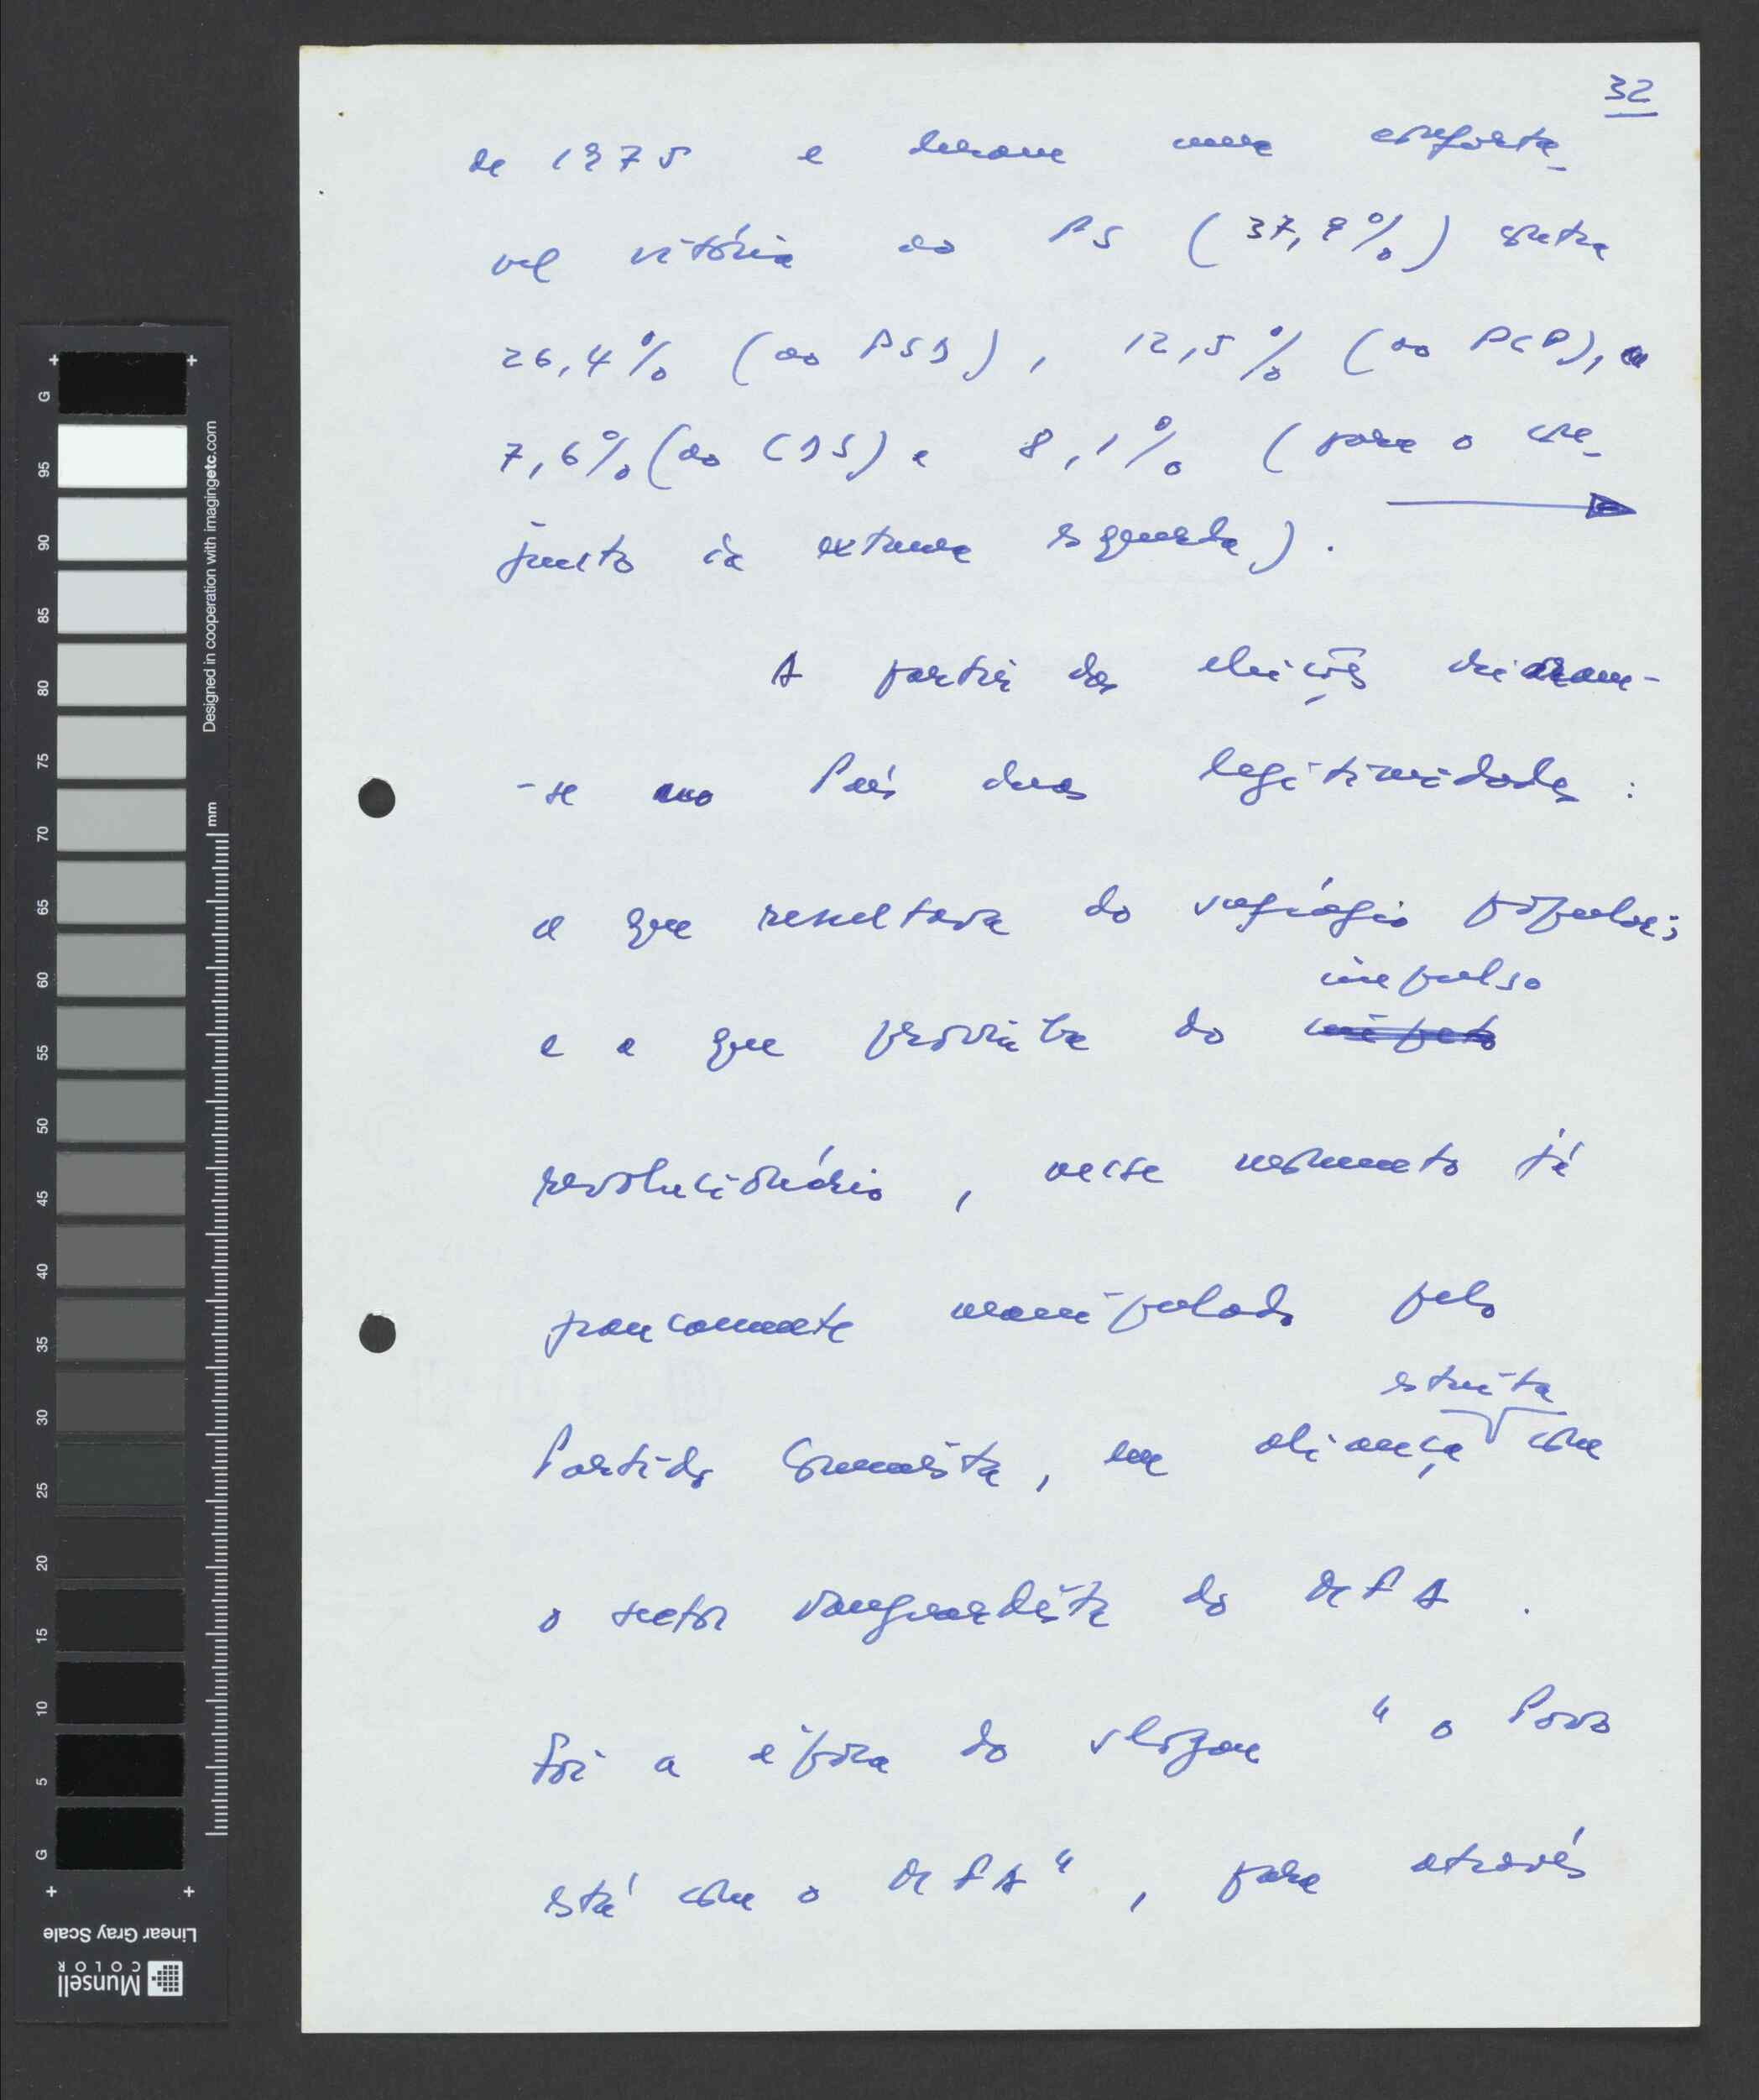 32
de 1975 e deram uma confortá-
vel vitória ao PS (37,9%) contra
26,4% (ao PSD), 12,5% (ao PCP),
7,6% (ao CDS) e 8,1% (para o con-
junto da extrema esquerda).
A partir das eleições criaram-
-se no País duas legitimidades:
a que resultava do sufrágio popular;
impulso
e a que provinha do
revolucionário, nesse momento já
francamente manipulado pelo
estreita
Partido Comunista, em aliança com
o sector vanguardista do MFA.
Foi a época do slogan "o Povo
está com o MFA", para através
G
95
90
85
80
75
70
65
60
55
50
45
40
35
30
25
20
15
10
5
G
mm
Designed in cooperation with imagingetc.com
Linear Gray Scale
Munsell
COLOR